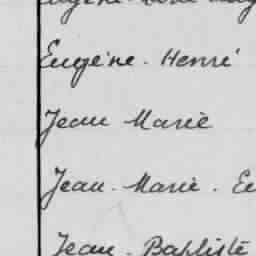 Eugène - Henri
Jean Marie
Jean - Marie - Eu
Jean - Baptiste